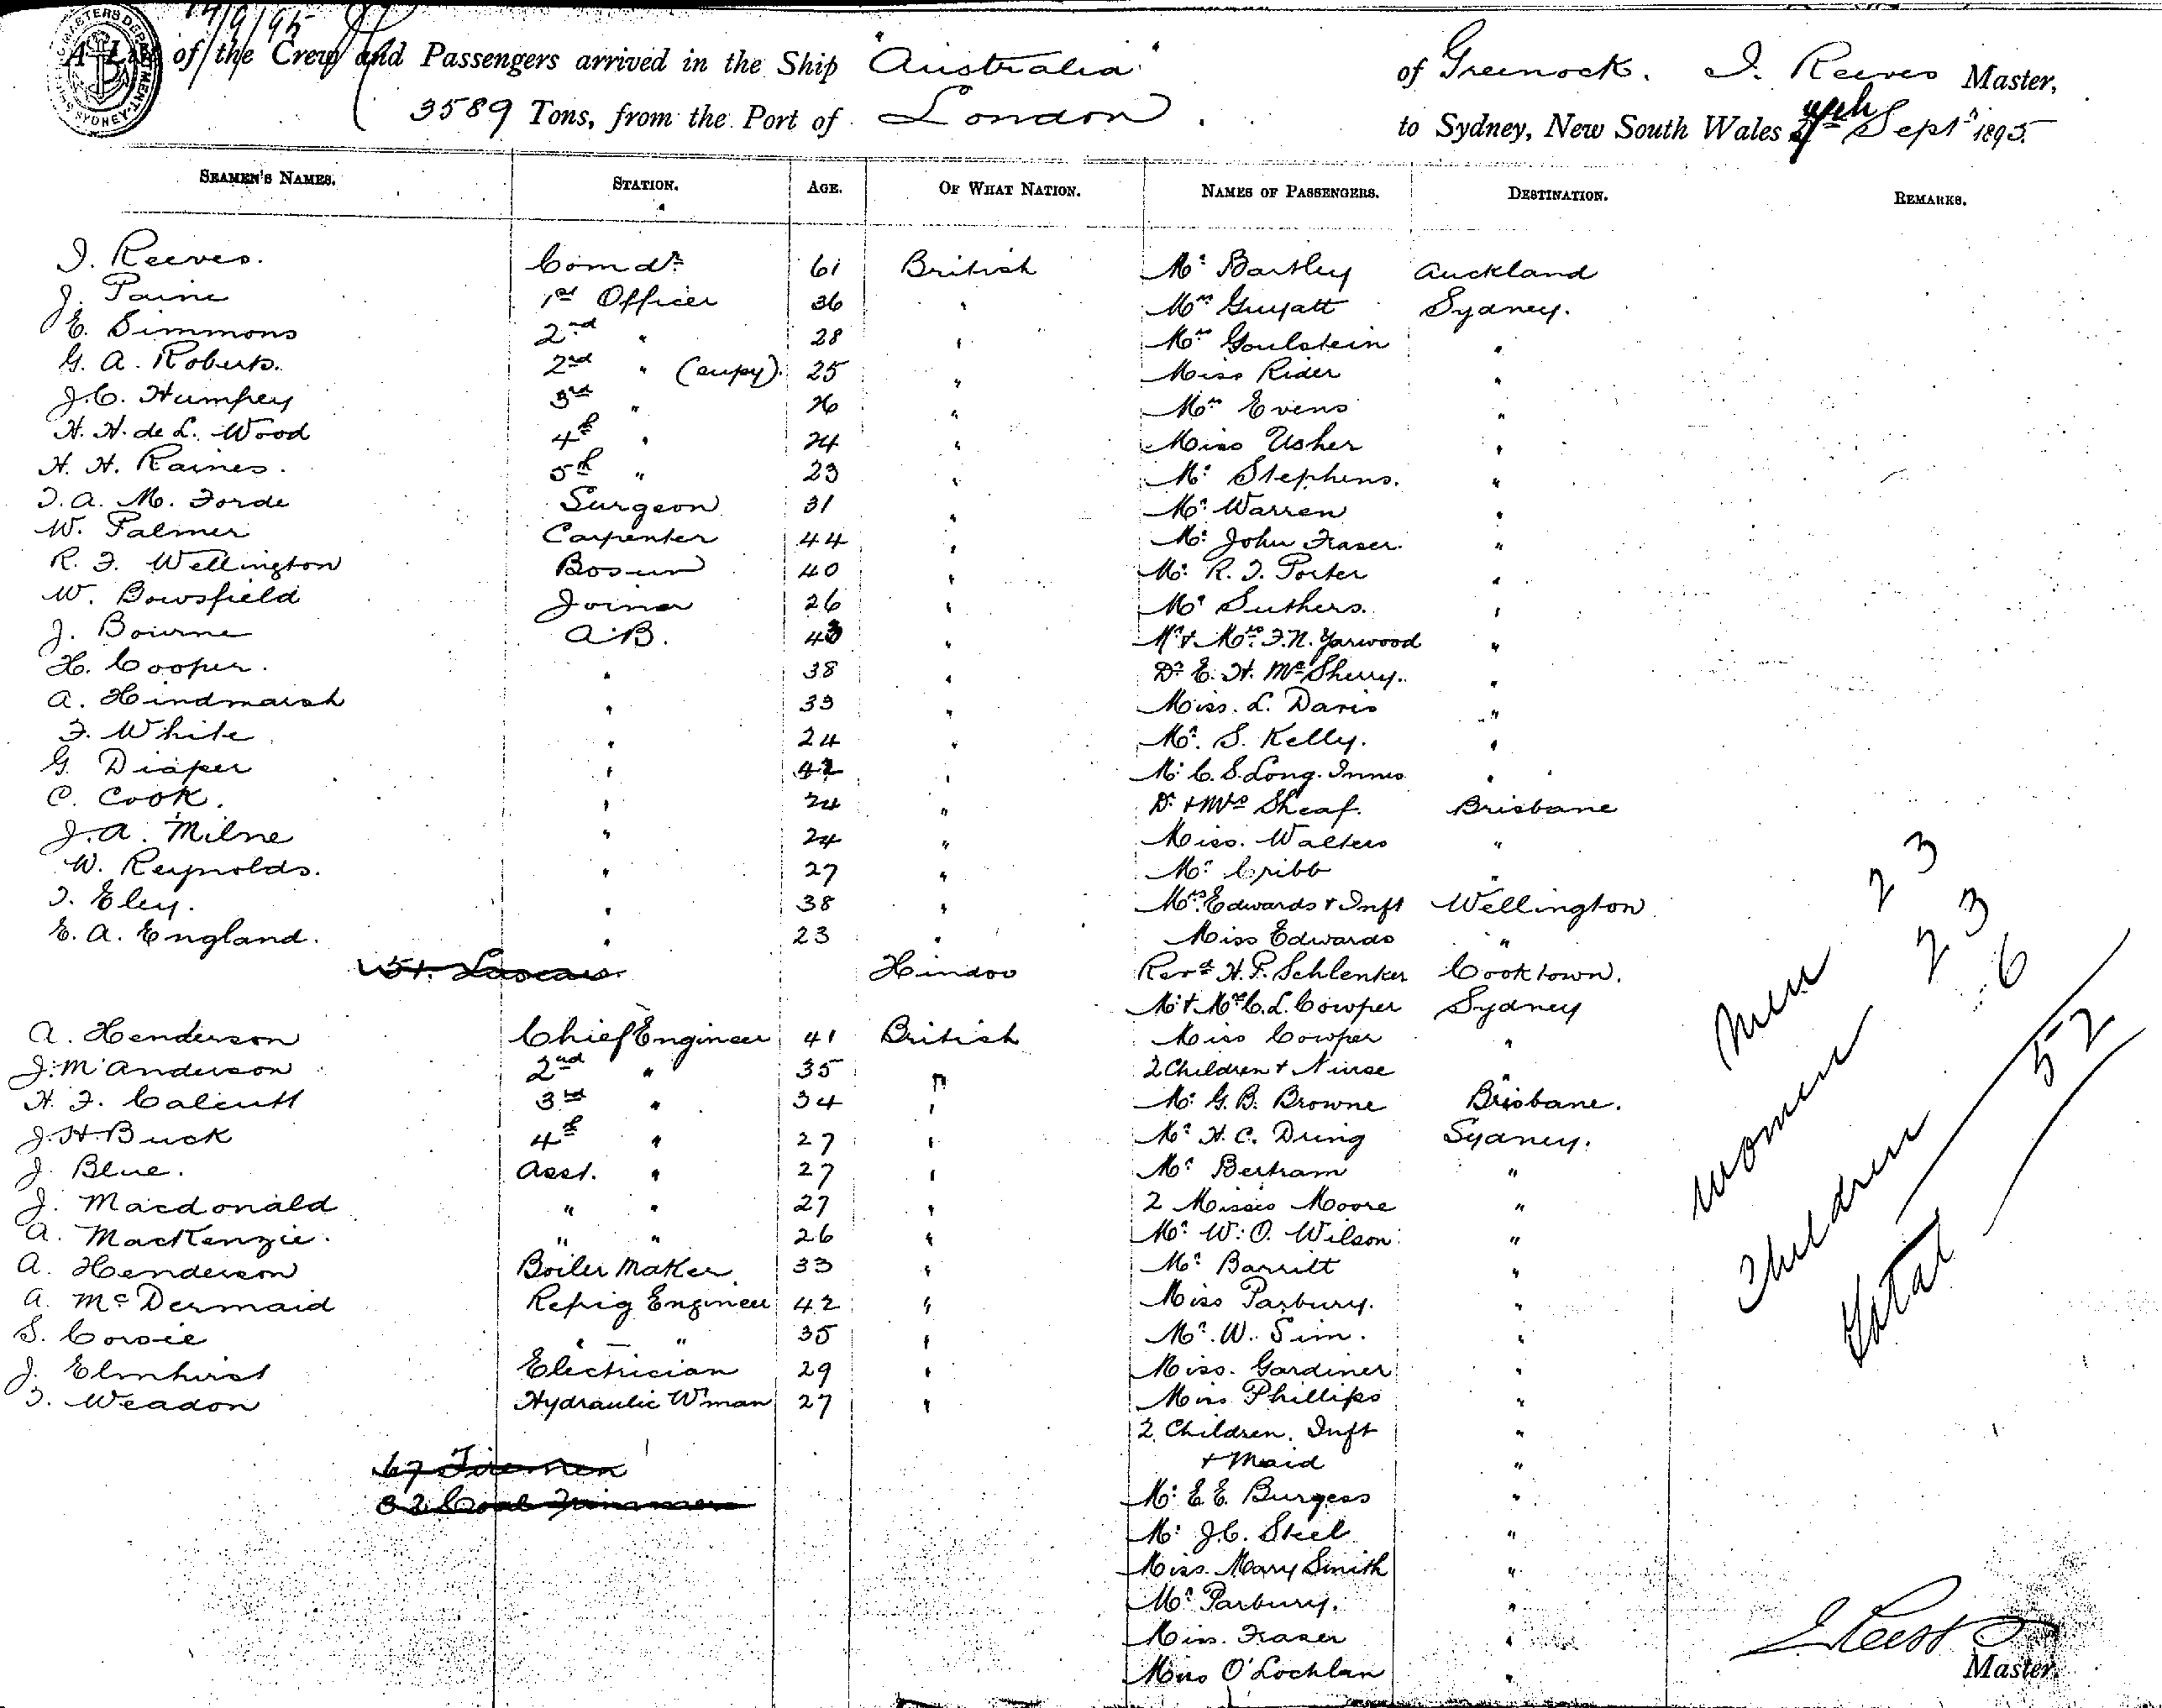 14/9/95
A List of the Crew and Passengers arrived in the Ship "Australia" of Greenock. J. Reeves Master,
3589 Tons, from the Port of London to Sydney, New South Wales Sept. 1895.
SEAMEN'S NAMES. STATION. AGE. OF WHAT NATION. NAMES OF PASSENGERS. DESTINATION. REMARKS.
J. Reeves. Comdr. 61 British Mr. Bartley Auckland
J. Paine 1st Officer 36 " Mrs Guyatt Sydney.
E. Simmons 2nd " 28 " Mrs Goulstein "
G. A. Roberts. 2nd " (supy). 25 " Miss Rider "
J. C. Humfrey 3rd " 26 " Mrs Evens "
H. H. de L. Wood 4th " 24 " Miss Usher "
H. H. Raines. 5th " 23 " Mr. Stephens. "
T. A. M. Forde Surgeon 31 " Mr. Warren "
W. Palmer Carpenter 44 " Mr. John Fraser. "
R. F. Wellington Bosun 40 " Mr. R. J. Porter "
W. Bowsfield Joiner 26 " Mr. Suthers. "
J. Bourne A.B. 43 " Mr. & Mrs. F. N. Yarwood "
H. Cooper. " 38 " Dr. E. H. McSherry. "
A. Hindmarsh " 33 " Miss. L. Davis "
F. White " 24 " Mr. S. Kelly. "
G. Diaper " 42 " Mr. C. S. Long. Innes "
C. Cook. " 24 " Dr. & Mrs Sheaf. Brisbane
J. A. Milne " 24 " Miss. Walters "
W. Reynolds. " 27 " Mr. Cribb "
T. Eley. " 38 " Mrs. Edwards & Inft Wellington
E. A. England. " 23 " Miss Edwards "
51. Lascars. Hindoo Revd H. P. Schlenker Cooktown.
Mr. & Mrs C. L. Cowper Sydney
A. Henderson Chief Engineer 41 British Miss Cowper "
J. McAnderson 2nd " 35 " 2 Children & Nurse "
H. F. Calcutt 3rd " 34 " Mr. G. B. Browne Brisbane.
J. H. Buck 4th " 27 " Mr. H. C. Dring Sydney.
J. Blue. Asst. " 27 " Mr. Bertram "
J. Macdonald " " 27 " 2 Misses Moore "
A. MacKenzie. " " 26 " Mr. W. O. Wilson "
A. Henderson Boiler Maker 33 " Mr. Barritt "
A. McDermaid Refrig Engineer 42 " Miss Parbury. "
S. Cowie " — " 35 " Mr. W. Sim. "
J. Elmhirst Electrician 29 " Miss. Gardiner "
T. Weadon Hydraulic W'man 27 " Miss Phillips "
2. Children. Inft "
& Maid "
67 Firemen
32 Coal Trimmers Mr. E. E. Burgess "
Mr. J. C. Steel "
Miss. Mary Smith "
Mr. Parbury. "
Miss. Fraser "
Miss O'Lochlan "
Men 23
Women 23
Children 6
Total 52
J Reeves
Master.